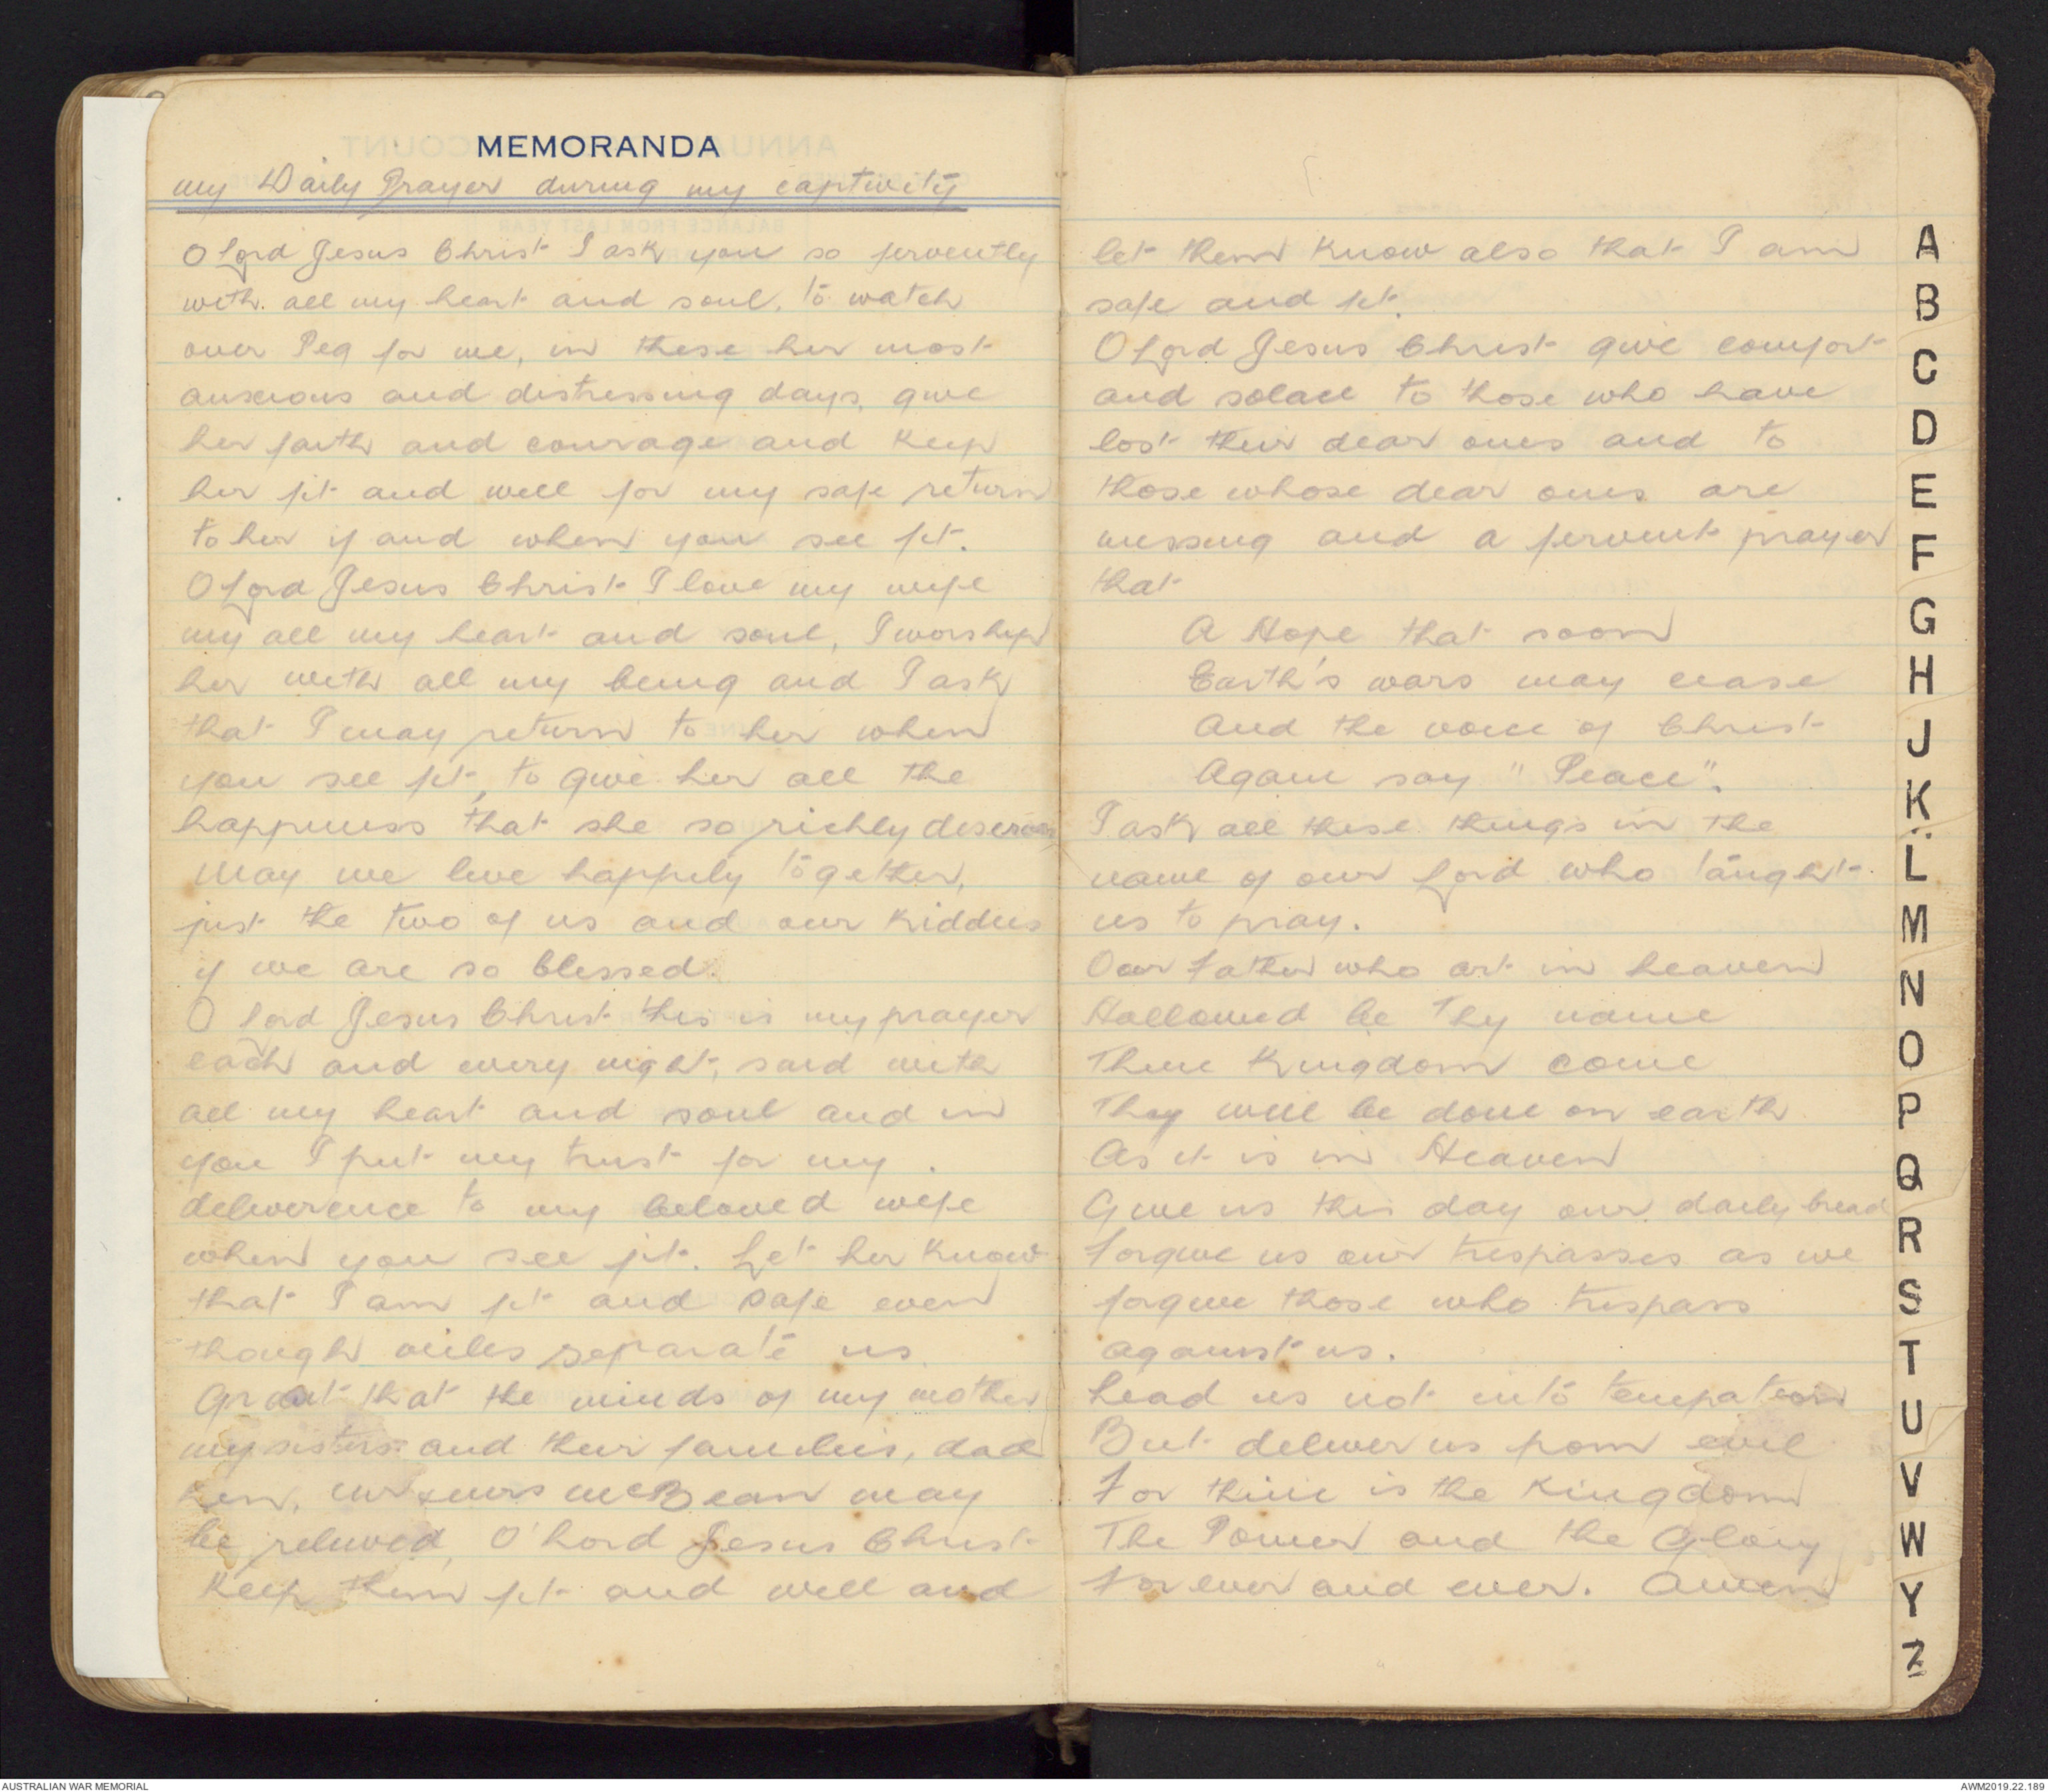 MEMORANDA
my Daily Prayer during my captivity
O Lord Jesus Christ I ask you so fervently
with all my heart and soul, to watch
over Peg for me, in these her most
anxious and distressing days, give
her faith and courage and keep
her fit and well for my safe return
to her if and when you see fit.
O Lord Jesus Christ I love my wife
my all my heart and soul, I worship
her with all my being and I ask
that I may return to her when
you see fit, to give her all the
happiness that she so richly deserves
May we live happily together,
just the two of us and our kiddies
if we are so blessed.
O Lord Jesus Christ this is my prayer
each and every night, said with
all my heart and soul and in
you I put my trust for my
deliverence to my beloved wife
when you see fit. Let her know
that I am fit and safe even
though miles separate us
Grant that the minds of my mother
my sisters and their families, dad
Ken, mr & mrs McBean may
be relieved, O' Lord Jesus Christ
keep them fit and well and
let them know also that I am
safe and fit.
O Lord Jesus Christ give comfort
and solace to those who have
lost their dear ones and to
those whose dear ones are
missing and a fervent prayer
that
A Hope that soon
Earth's wars may cease
And the voice of Christ
Again say "Peace".
I ask all these things in the
name of our Lord who taught
us to pray.
Our Father who art in heaven
Hallowed be Thy name
Thine Kingdom come
Thy will be done on earth
As it is in Heaven
Give us this day our daily bread
Forgive us our trespasses as we
forgive those who trespass
against us.
Lead us not into tempation
But deliver us from evil
For thine is the Kingdom
The Power and the Glory
For ever and ever. Amen
A
B
C
D
E
F
G
H
J
K
L
M
N
O
P
Q
R
S
T
U
V
W
Y
Z
AUSTRALIAN WAR MEMORIAL
AWM2019.22.189